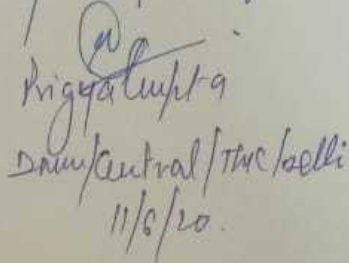 Prigya Gupta
DMM/Central/THC/Delhi
11/6/20.